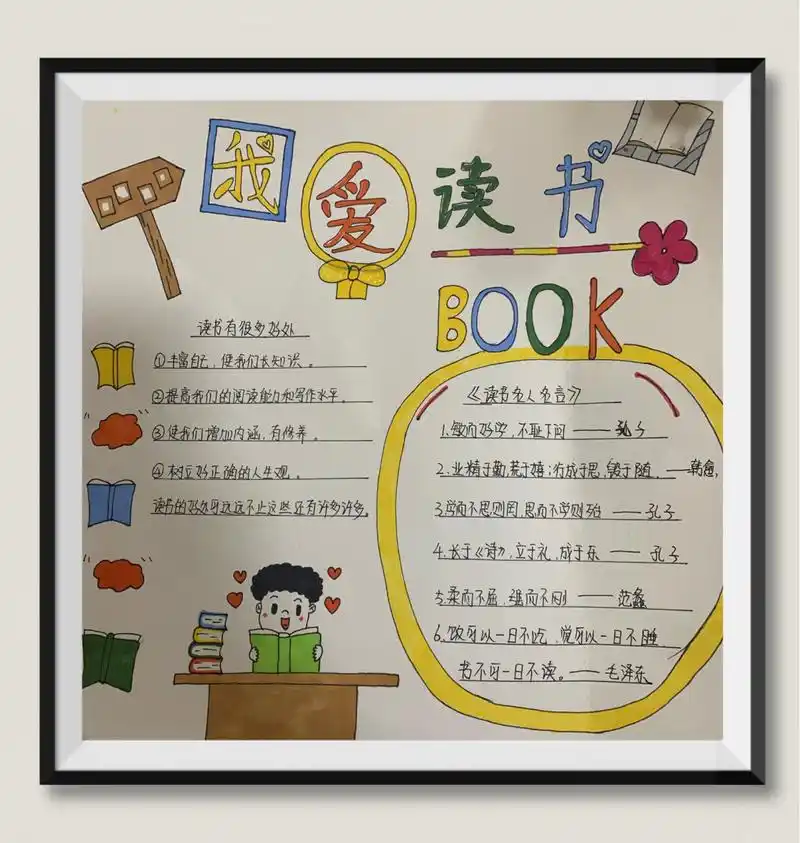 我爱读书
BOOK
读书有很多好处
①丰富自己,使我们长知识。
②提高我们的阅读能力和写作水平。
③使我们增加内涵,有修养。
④树立好正确的人生观。
读书的好处可远远不止这些还有许多许多。
《读书名人名言》
1.敏而好学,不耻下问——孔子
2.业精于勤,荒于嬉;行成于思,毁于随。——韩愈,
3.学而不思则罔,思而不学则殆——孔子
4.长于《诗》,立于礼,成于乐——孔子
5.柔而不屈,强而不刚——范蠡
6.饭可以一日不吃,觉可以一日不睡
书不可一日不读。——毛泽东